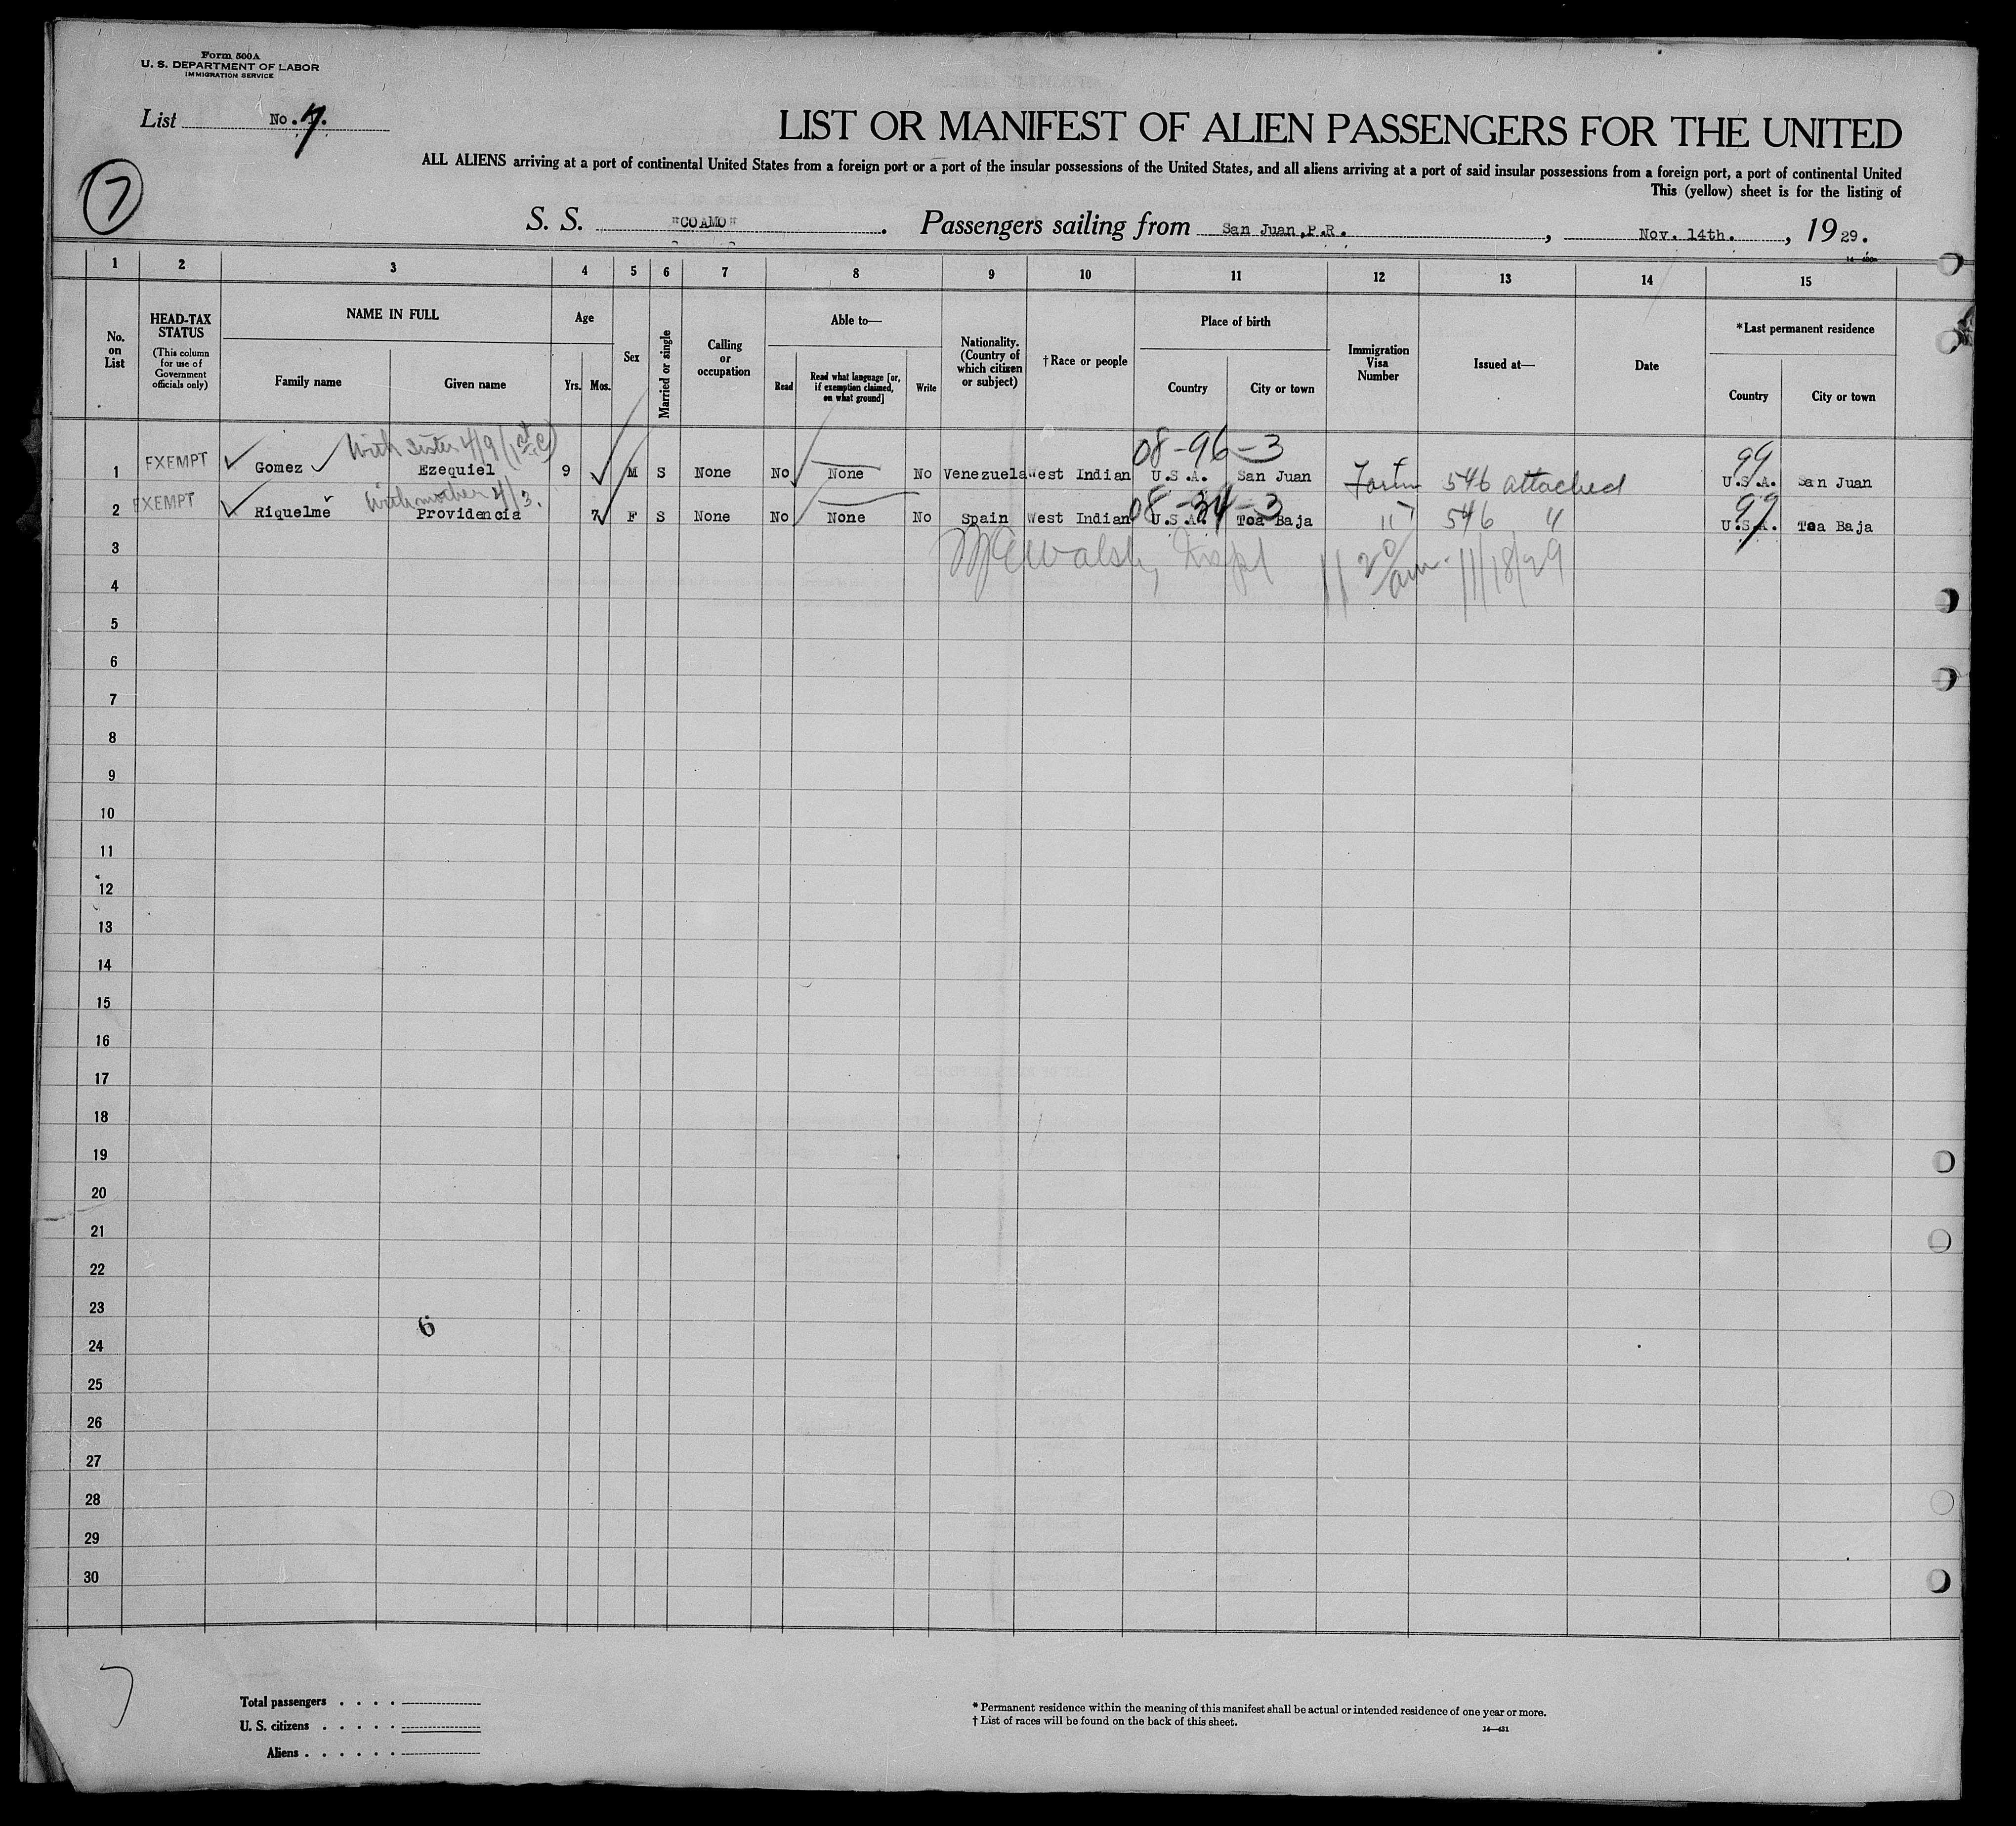 Form 500A
U. S. DEPARTMENT OF LABOR
IMMIGRATION SERVICE
List No. 7.
7
LIST OR MANIFEST OF ALIEN PASSENGERS FOR THE UNITED
ALL ALIENS arriving at a port of continental United States from a foreign port or a port of the insular possessions of the United States, and all aliens arriving at a port of said insular possessions from a foreign port, a port of continental United
This (yellow) sheet is for the listing of
S. S. "COAMO". Passengers sailing from San Juan,P.R., Nov. 14th., 1929.
1 2 3 4 5 6 7 8 9 10 11 12 13 14 15
No. on List
HEAD-TAX STATUS
(This column for use of Government officials only)
NAME IN FULL
Family name
Given name
Age
Yrs.
Mos.
Sex
Married or single
Calling or occupation
Able to—
Read
Read what language [or, if exemption claimed, on what ground]
Write
Nationality. (Country of which citizen or subject)
†Race or people
Place of birth
Country
City or town
Immigration Visa Number
Issued at—
Date
*Last permanent residence
Country
City or town
With sister 4/9 (1st C)
08-96-3
99
1 EXEMPT Gomez Ezequiel 9 M S None No None No Venezuela West Indian U.S.A. San Juan Form 546 attached U.S.A. San Juan
With mother 4/3.
08-34-3
99
2 EXEMPT Riquelme Providencia 7 F S None No None No Spain West Indian U.S.A. Toa Baja " 546 " U.S.A. Toa Baja
3
Walsh, Inspt 11 20/am. 11/18/29
4
5
6
7
8
9
10
11
12
13
14
15
16
17
18
19
20
21
22
23
6
24
25
26
27
28
29
30
7
Total passengers . . . .
U. S. citizens . . . . .
Aliens . . . . . .
* Permanent residence within the meaning of this manifest shall be actual or intended residence of one year or more.
† List of races will be found on the back of this sheet.
14—431